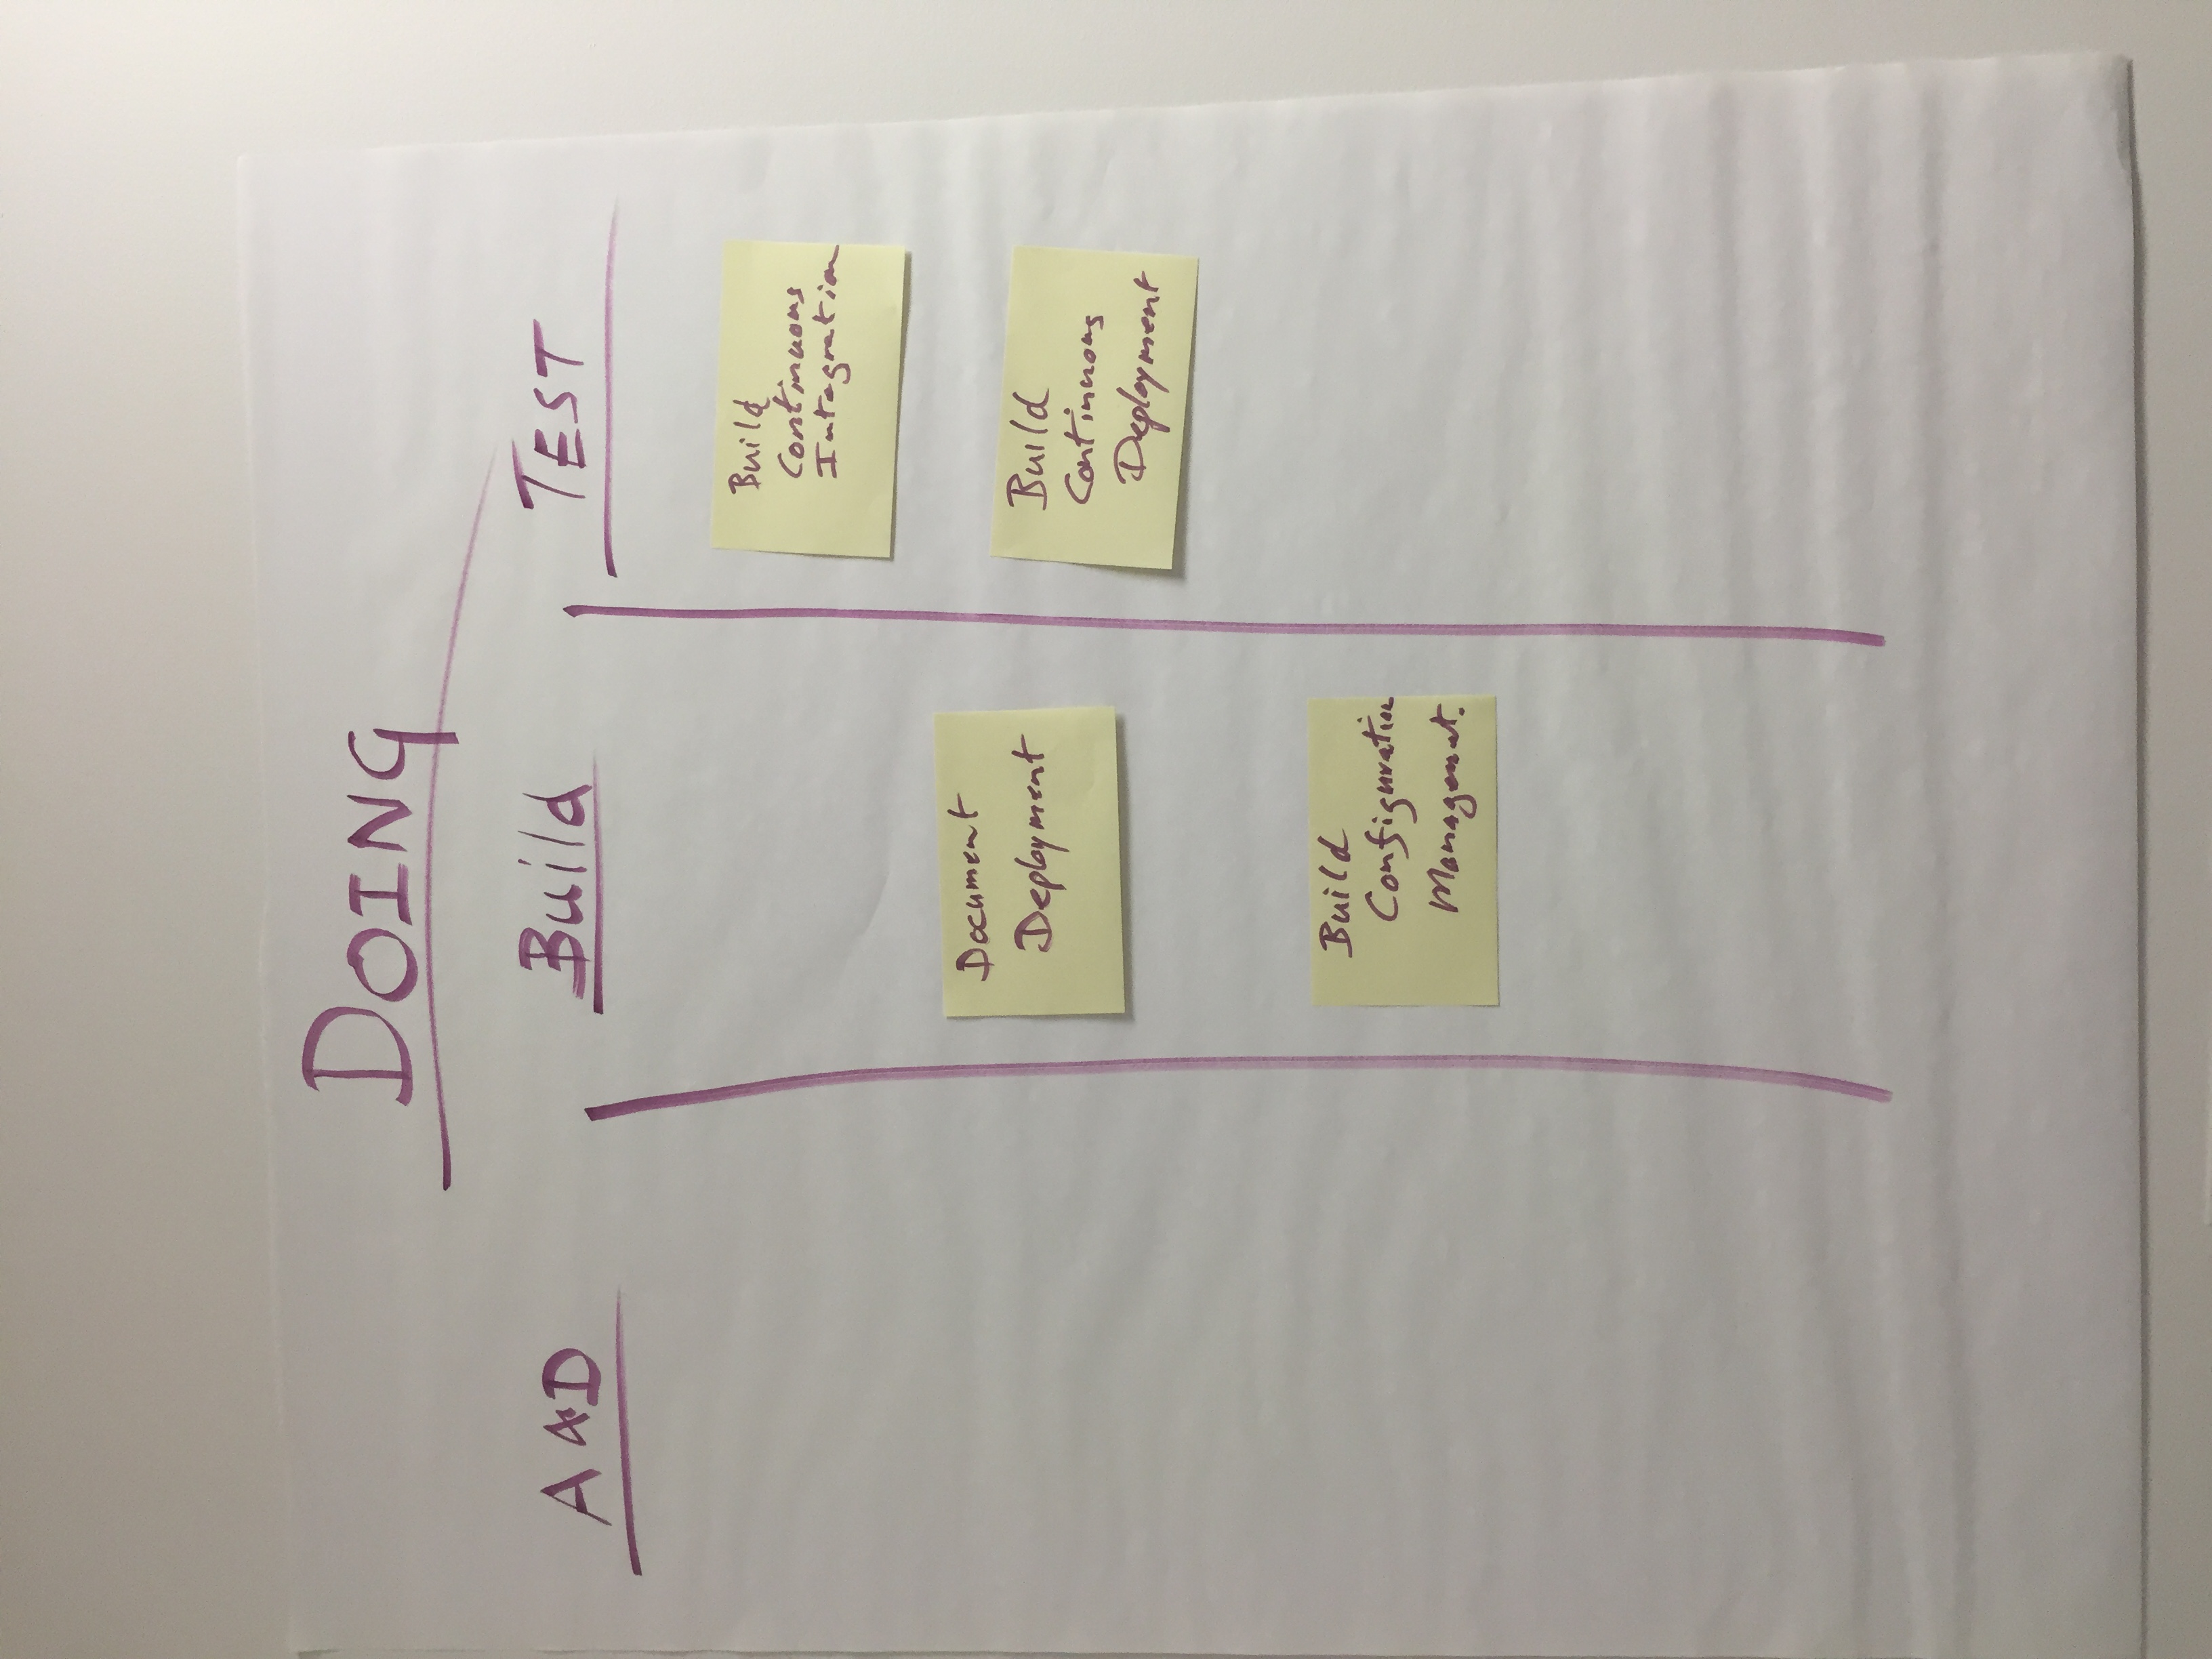 DOING
A&D
Build
TEST
Document
Deployment
Build
Configuration
Management.
Build
Continuous
Integration
Build
Continuous
Deployment